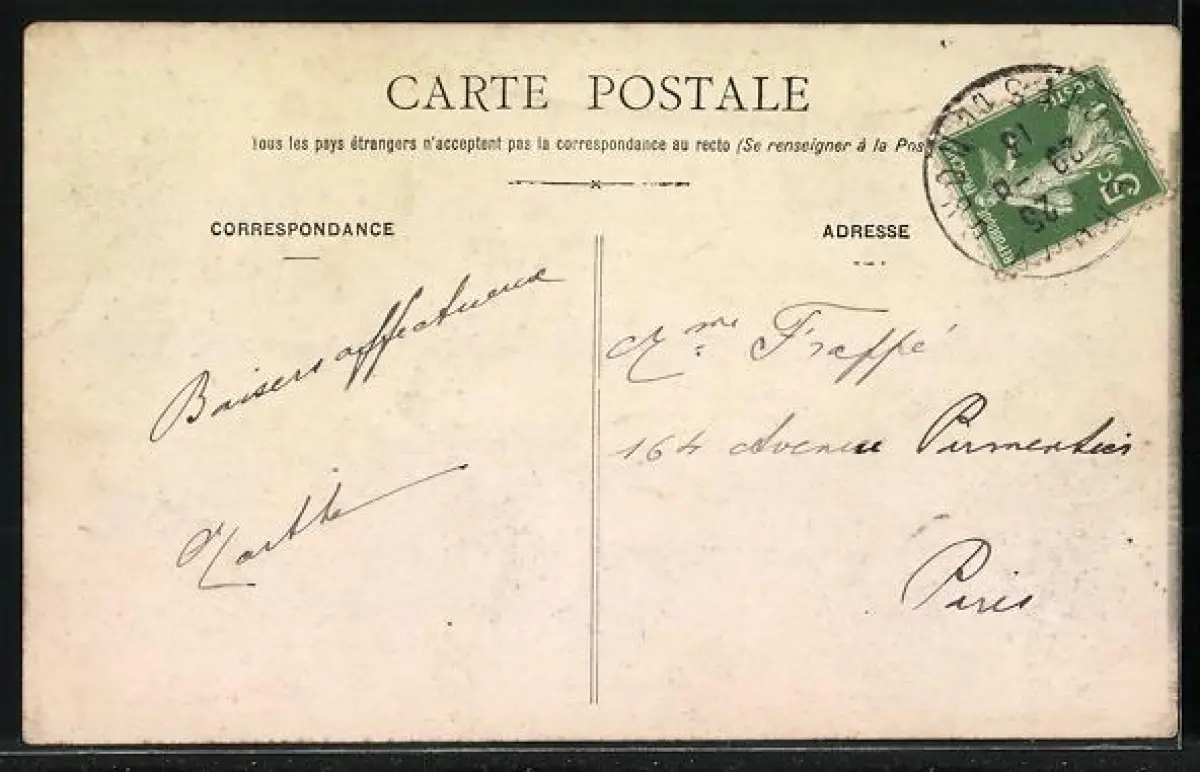 CARTE POSTALE
Tous les pays étrangers n'acceptent pas la correspondance au recto (Se renseigner à la Pos
CORRESPONDANCE
ADRESSE
Baisers affectueux
Marthe
Mme Fraffé
164 Avenue Parmentier
Paris
5c